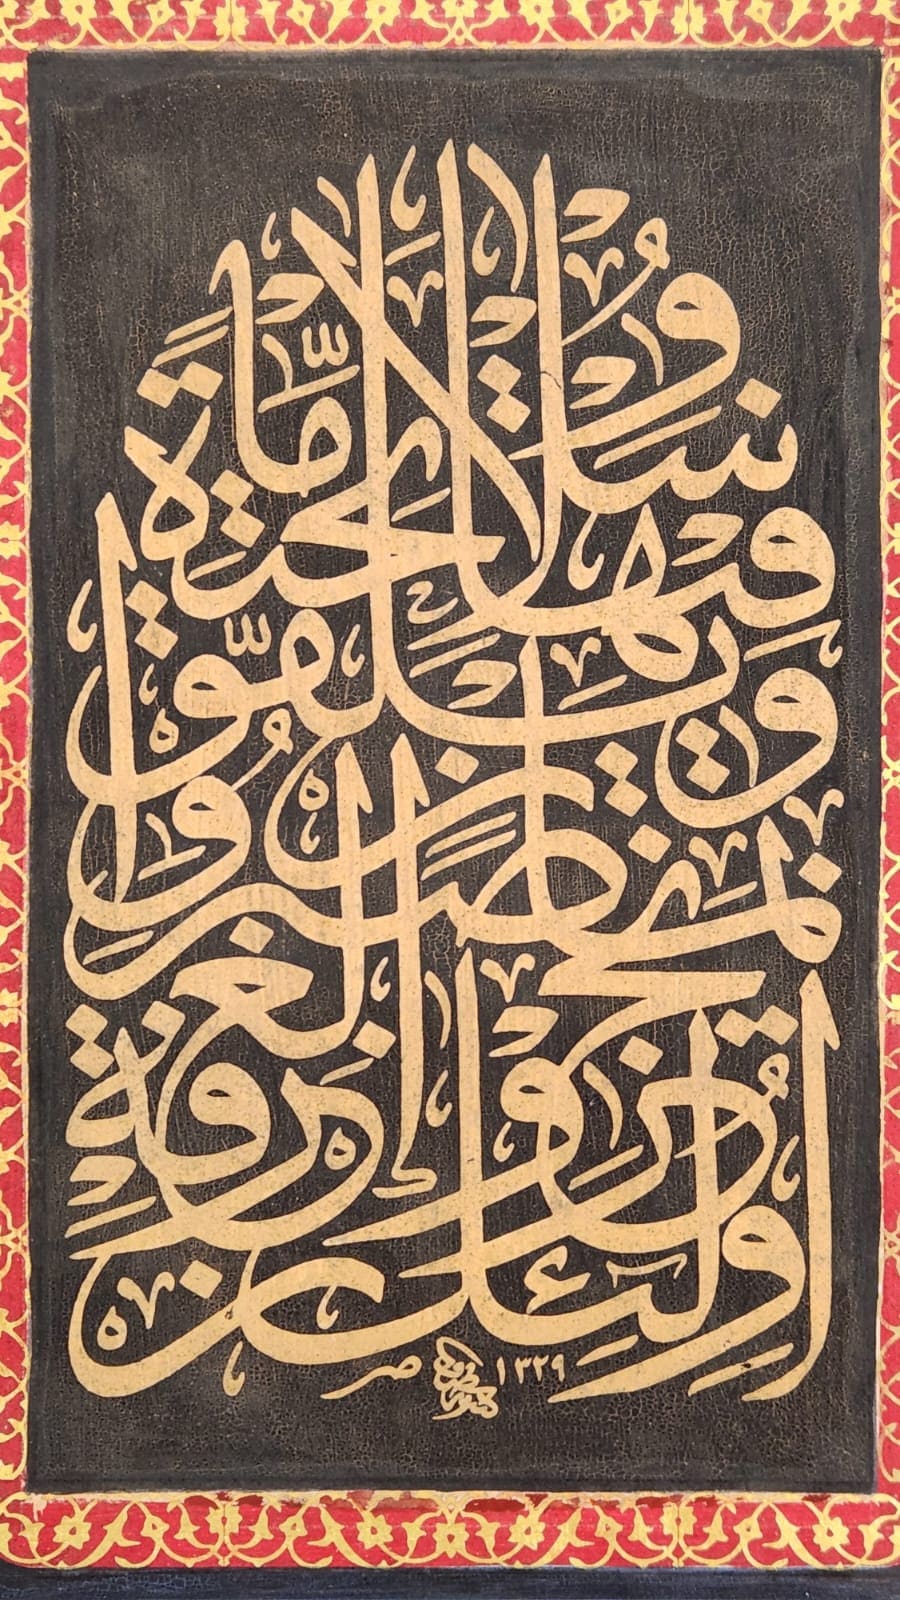 أُولَٰئِكَ يُجْزَوْنَ الْغُرْفَةَ
بِمَا صَبَرُوا
وَيُلَقَّوْنَ
فِيهَا تَحِيَّةً
وَسَلَامًا
١٣٢٩